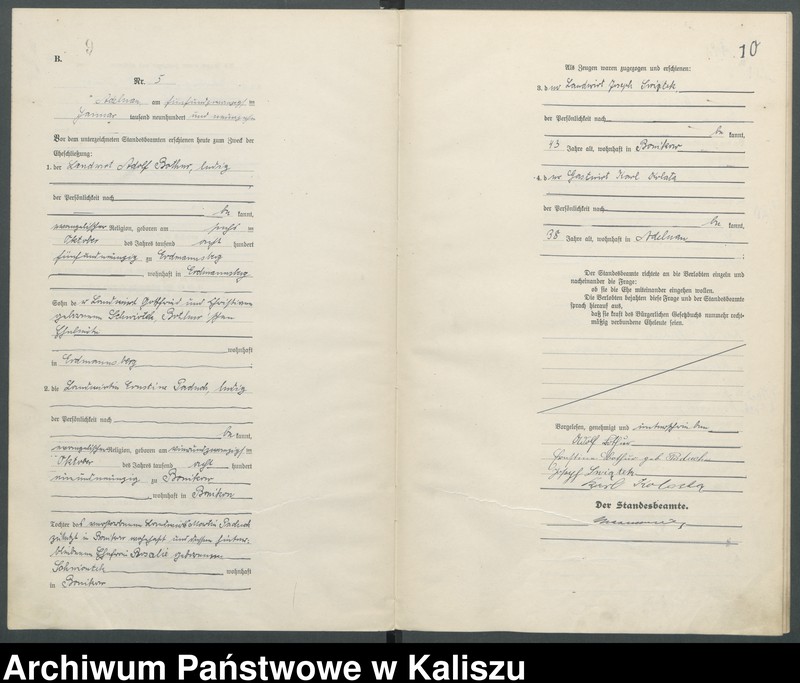 B.
9)
Nr. 5
Adelnau am fünfundzwanzigsten
Januar tausend neunhundert und neunzehn
Vor dem unterzeichneten Standesbeamten erschienen heute zum Zweck der
Eheschließung:
1. der Landwirt Adolf ledig
der Persönlichkeit nach
be kannt,
evangelischer Religion, geboren am
Oktober des Jahres tausend acht hundert
fünfundneunzig zu Erdmannsberg
wohnhaft in Erdmannsberg
Sohn des Landwirt Gottfried und
geborenen
Eheleute
wohnhaft
in Erdmannsberg
2. die Landwirtin Ernestine ledig
der Persönlichkeit nach
be kannt,
evangelischer Religion, geboren am einundzwanzigsten
Oktober des Jahres tausend acht hundert
einundneunzig zu Bonikow
wohnhaft in Bonikow
Tochter des verstorbenen Landwirts Martin
zuletzt in Bonikow wohnhaft und dessen hinter-
bliebenen Ehefrau Rosalie geborenen
wohnhaft
in Bonikow
10
Als Zeugen waren zugegen und erschienen:
3. der Landwirt Joseph Swiątek
der Persönlichkeit nach
be kannt,
43 Jahre alt, wohnhaft in Bonikow
4. der Gastwirt Karl
der Persönlichkeit nach
be kannt,
38 Jahre alt, wohnhaft in Adelnau
;
Der Standesbeamte richtete an die Verlobten einzeln und
nacheinander die Frage:
ob sie die Ehe miteinander eingehen wollen.
Die Verlobten bejahten diese Frage und der Standesbeamte
sprach hierauf aus,
daß sie kraft des Bürgerlichen Gesetzbuchs nunmehr recht-
mäßig verbundene Eheleute seien.
Vorgelesen, genehmigt und unterschrieben
Adolf
Ernstine geb
Joseph Swiątek
Karl
Der Standesbeamte.
Archiwum Państwowe w Kaliszu